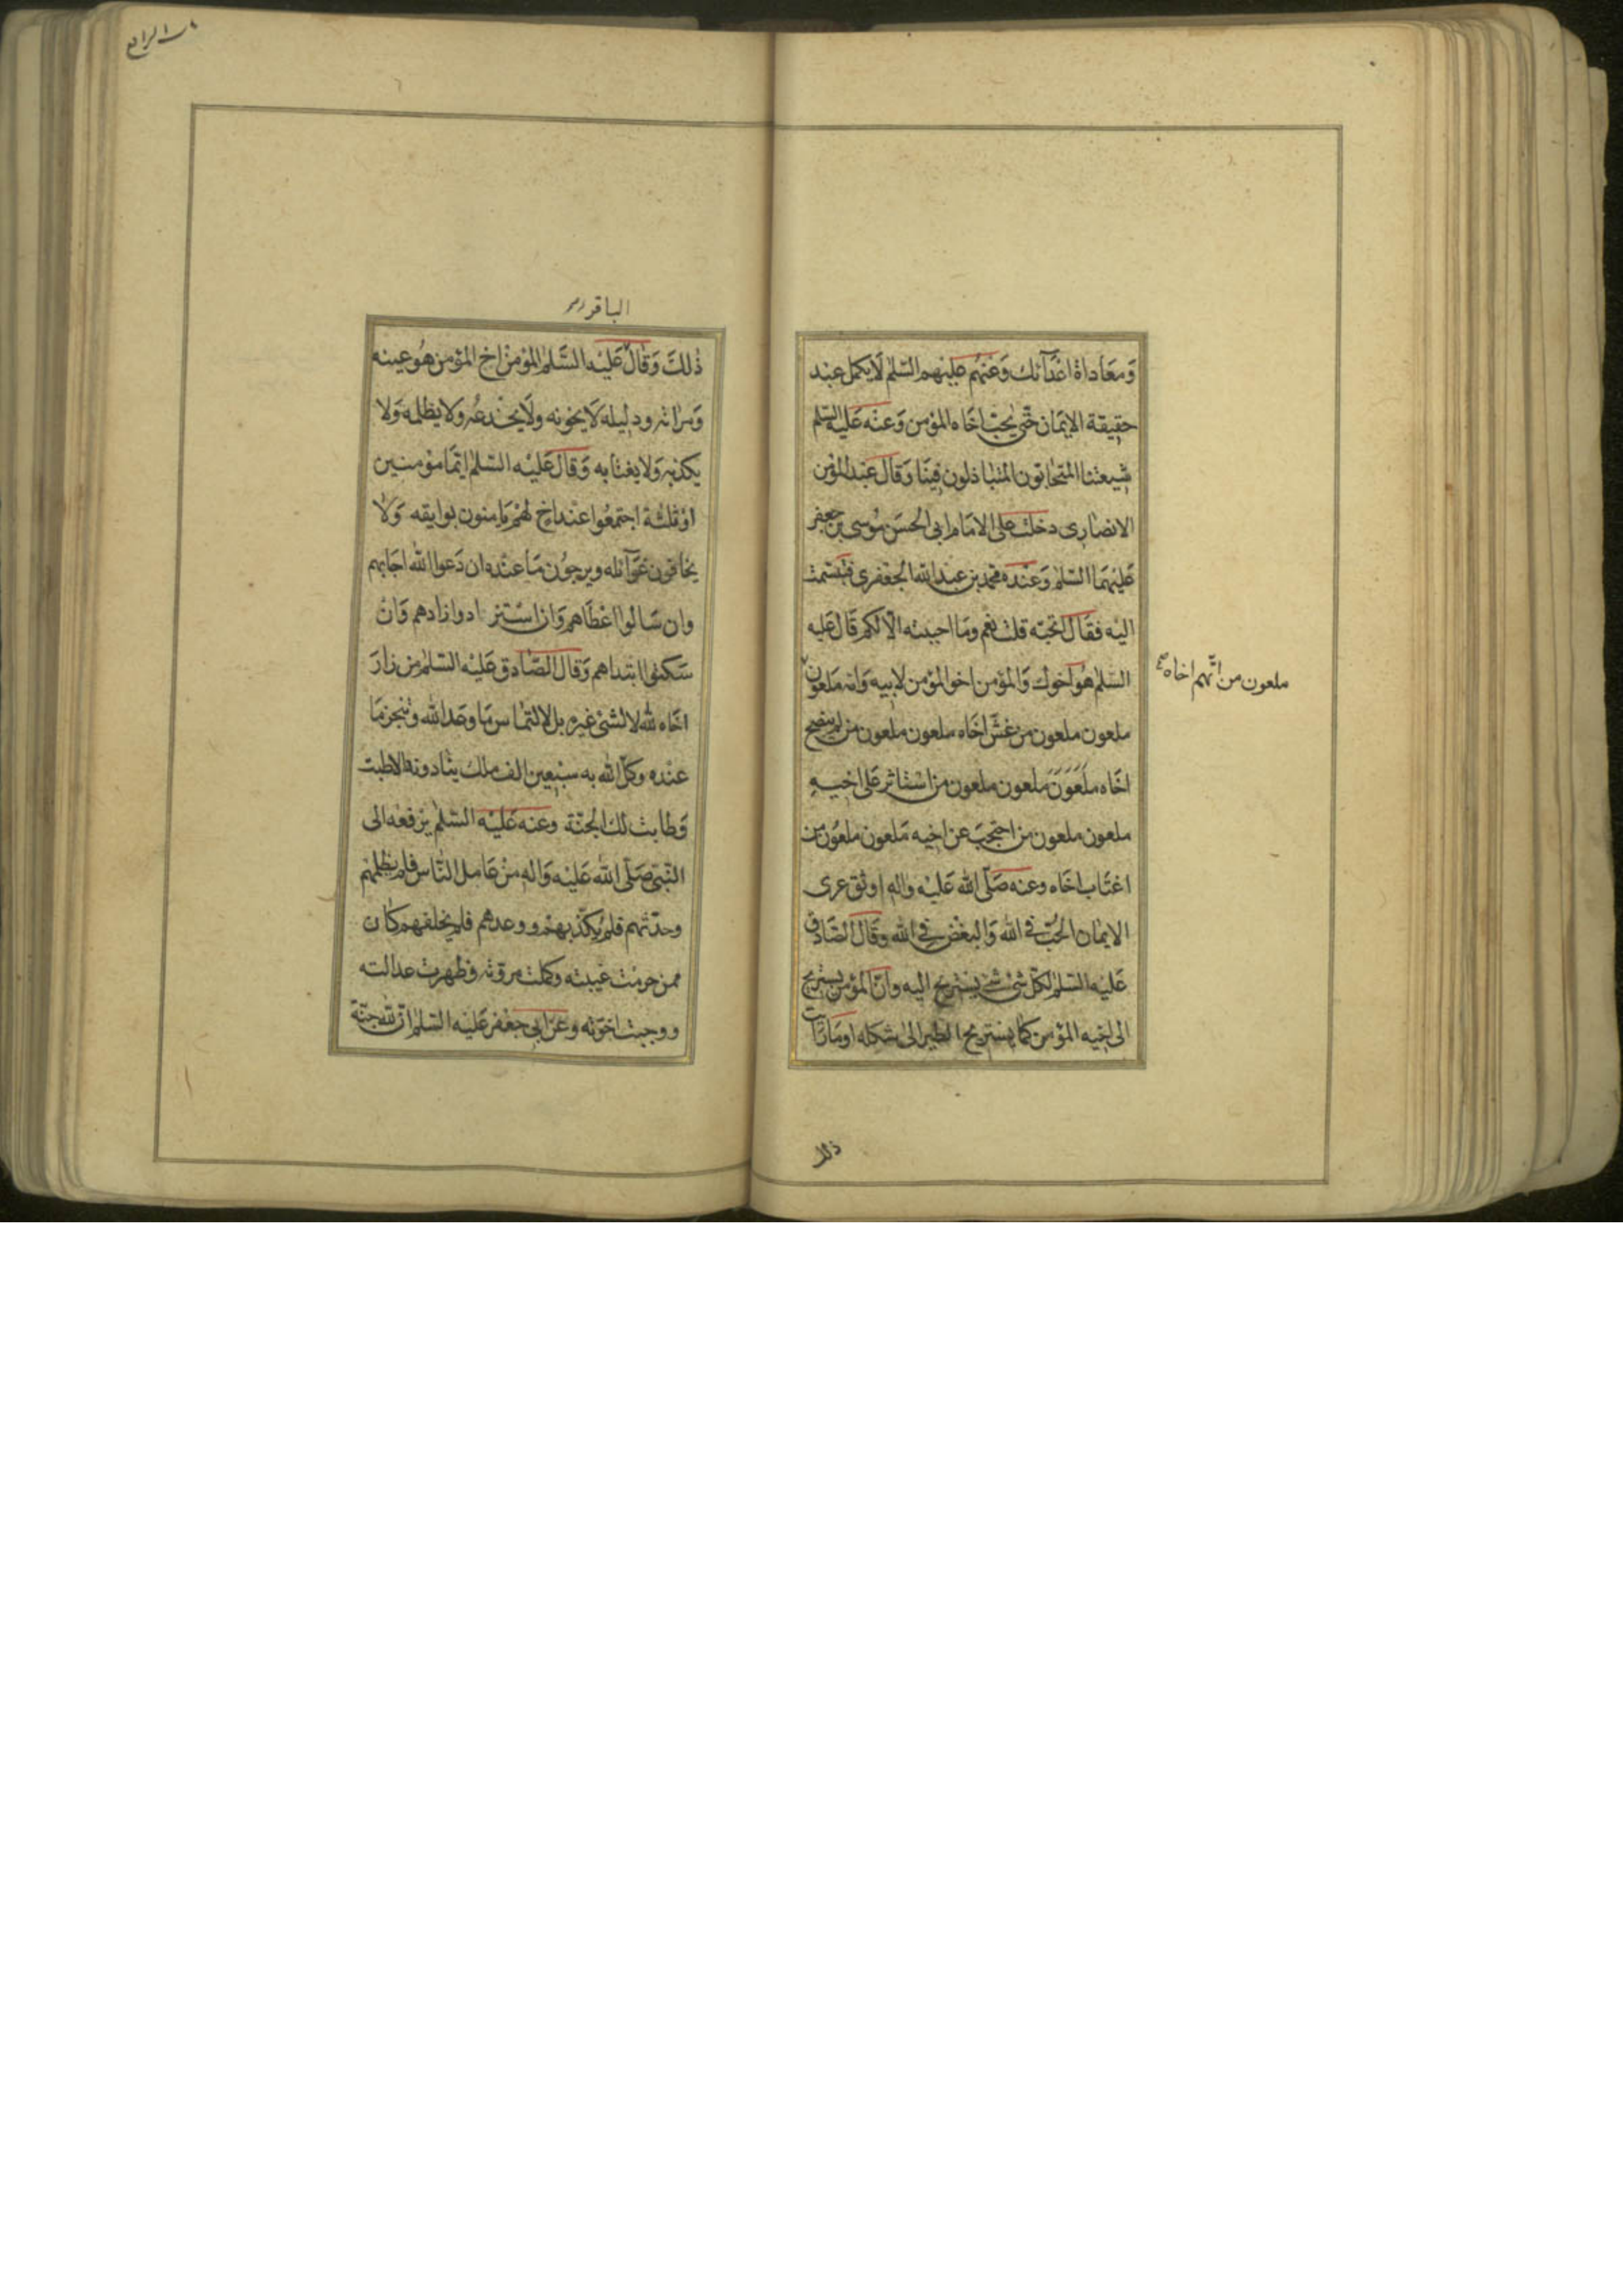 وَمعَاداة اعْدَآئك وَعَنهُم عليهم السّلم لَا يكمل عبْد
حقيقة الايمَان حتّى يحبّ اخَاه المؤمن وَعنْه عَليْه السّلم
شيعتنا المتحَابّون المتبَاذلون فينَا وَقال عَبْد المؤمن
الانصَارى دخلت على الامَام ابى الحسَن مُوسى بن جعفر
عَليهمَا السّلم وَعنْده محمد بن عبْد الله الجعْفرى فتبسّمت
اليْه فقال اتحبّه قلت نعم ومَا احببته الّا لكم قَال عَليه
السّلم هُوَ اخوك وَالمؤمن اخو المؤمن لابيه وَامّه مَلعون
ملعون من اتّهم اخاه صح
ملعون ملعون من غشّ اخَاه ملعون ملعون من لم ينصح
اخَاه مَلعَون مَلعون ملعون من استاثر عَلى اخيه
ملعون ملعون من احتجبَ عن اخيه مَلعون ملعُون من
اغتَاب اخَاه وعنه صَلّى الله عَليْه واله اوثق عرى
الايمَان الحُبّ فى الله وَالبغْض فى الله وقَال الصّادق
عَليْه السّلم لكلّ شىْ شىْ يسْتريح اليه وانّ المؤمن يسْتريح
الى اخيه المؤمن كمَا يسْتريح الطير الى شكله اومَا رَأيت
ذلك
الباقر
ذٰلكَ وَقال عَليْه السَّلم المؤمن اخ المؤمن هُو عينه
وَمراته ودليله لَا يخونه ولَا يخْدعُه وَلا يظلمه وَلا
يكذبه وَلا يغتابه وَقال عَليْه السّلم ايّمَا مؤمنين
اوْ ثلثة اجتمعُوا عنْد اخ لهُمْ يَامنون بوايقه وَلَا
يخافون غَوَآئله ويرجُون مَا عنْده ان دَعوا الله اجَابهم
وان سَالوا اعْطَاهم وَان اسْتزادوا زادهم وَانْ
سَكتوا ابتداهم وَقال الصّادق عَليْه السّلم من زارَ
اخَاه لله لا لشىْ غيره بل لالتمَاس مَا وعَد الله وتنجز مَا
عنْده وكّل الله به سبْعين الف ملك ينَادونه الا طبت
وَطابت لك الجنّة وعنه عَليْه السّلم يرْفعْه الى
النّبى صَلّى الله عَليْه وَاله مَنْ عَامل النّاس فلم يظلمهم
وحدّثهم فلم يكذّبهمْ ووعدهم فلم يخلفهم كان
ممن حرمت غيبته وكملت مروّته وظهرت عدالته
ووجبت اخوّته وعَن ابى جعْفر عَليْه السّلم انّ لله جنّة